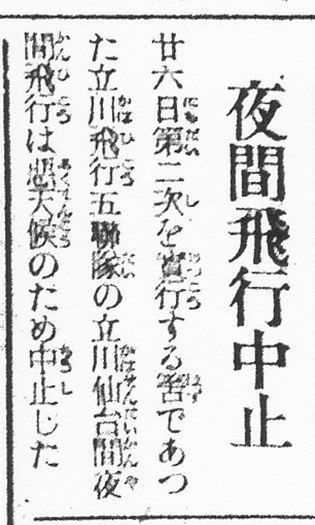 夜間飛行中止
廿六日第二次を實行する筈であつ
た立川飛行五聯隊の立川仙台間夜
間飛行は悪天候のため中止した